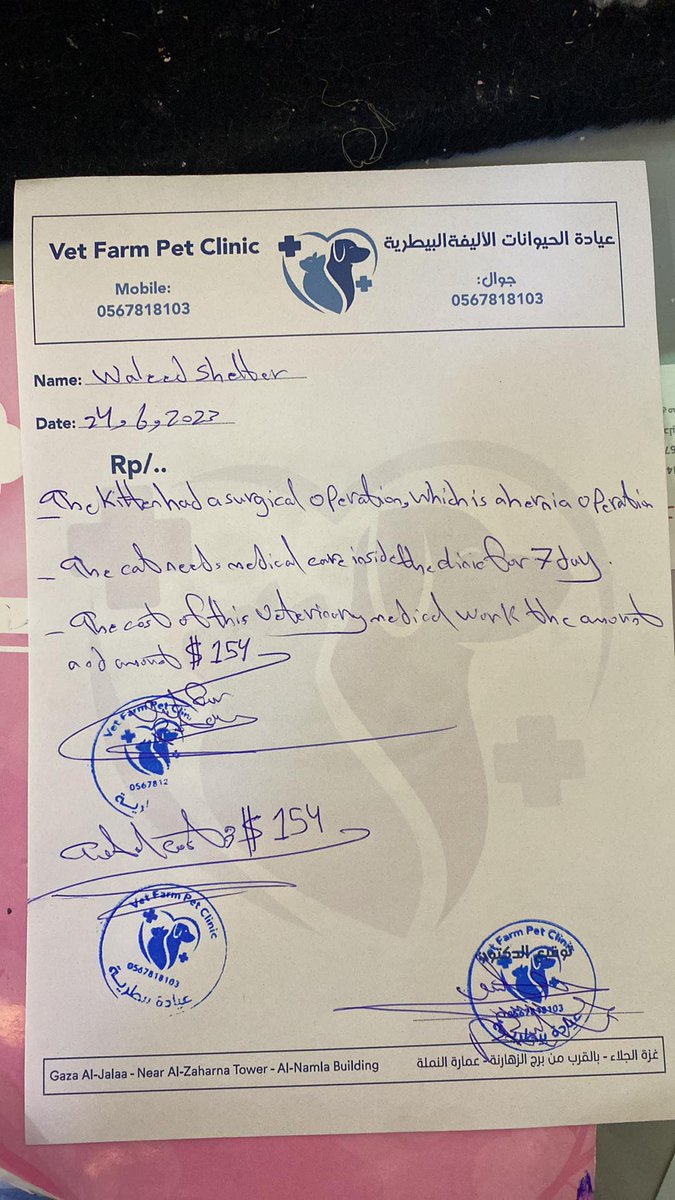 Vet Farm Pet Clinic
Mobile:
0567818103
عيادة الحيوانات الأليفةالبيطرية
جوال:
0567818103
Name: Waleed Shelter
Date: 24,6,2023
Rp/..
The Kitten had a surgical operation, which is a hernia operation
- The cat needs medical care inside the clinic for 7 day.
- The cost of this veterinary medical work the amount
amount $ 154
Vet Farm Pet Clinic
056781
$ 154
Vet Farm Pet Clinic
0567818103
عيادة بيطرية
Vet Farm Pet Clinic
توقيع الدكتور
0567818103
عيادة بيطرية
Gaza Al-Jalaa - Near Al-Zaharna Tower - Al-Namla Building
غزة الجلاء - بالقرب من برج الزهارنة - عمارة النملة